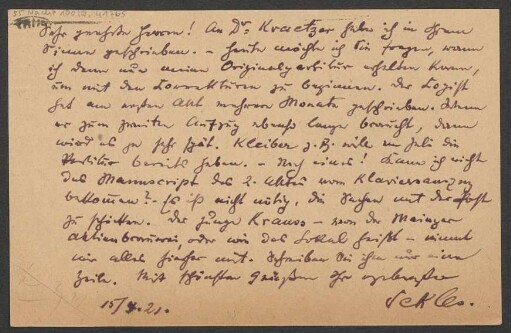 Sehr geehrte Herren! An Dr. Kraetzer habe ich in Ihrem
Sinne geschrieben. – Heute möchte ich Sie fragen, wann
ich denn nun meine Originalpartitur erhalten kann,
um mit den Correkturen zu beginnen. Der Copist
hat am ersten Akt mehrere Monate geschrieben. Wenn
er zum zweiten Aufzug ebenso lange braucht, dann
wird es ja sehr spät. Kleiber z. B. will im Juli die
Partitur bereits haben. – Noch eines! Kann ich nicht
das Manuscript des 2. Aktes vom Klavierauszug
bekommen? – Es ist nicht nötig, die Sachen mit der Post
zu schicken. Der junge Krauss – von der Mainzer
Aktienbrauerei, oder wie das Lokal heißt – nimmt
mir alles hierher mit. Schreiben Sie ihm nur eine
Zeile. Mit schönsten Grüßen Ihr ergebenster
15/ .21. Sekles.